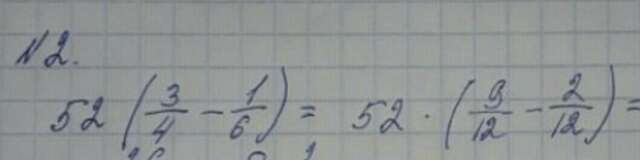 №2.
52 (3/4 - 1/6) = 52 · (9/12 - 2/12) =